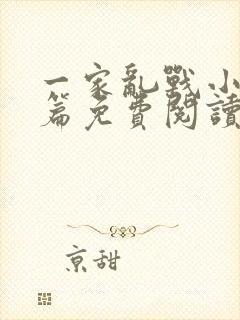 一家亂戰小
篇免費閱讀
京甜